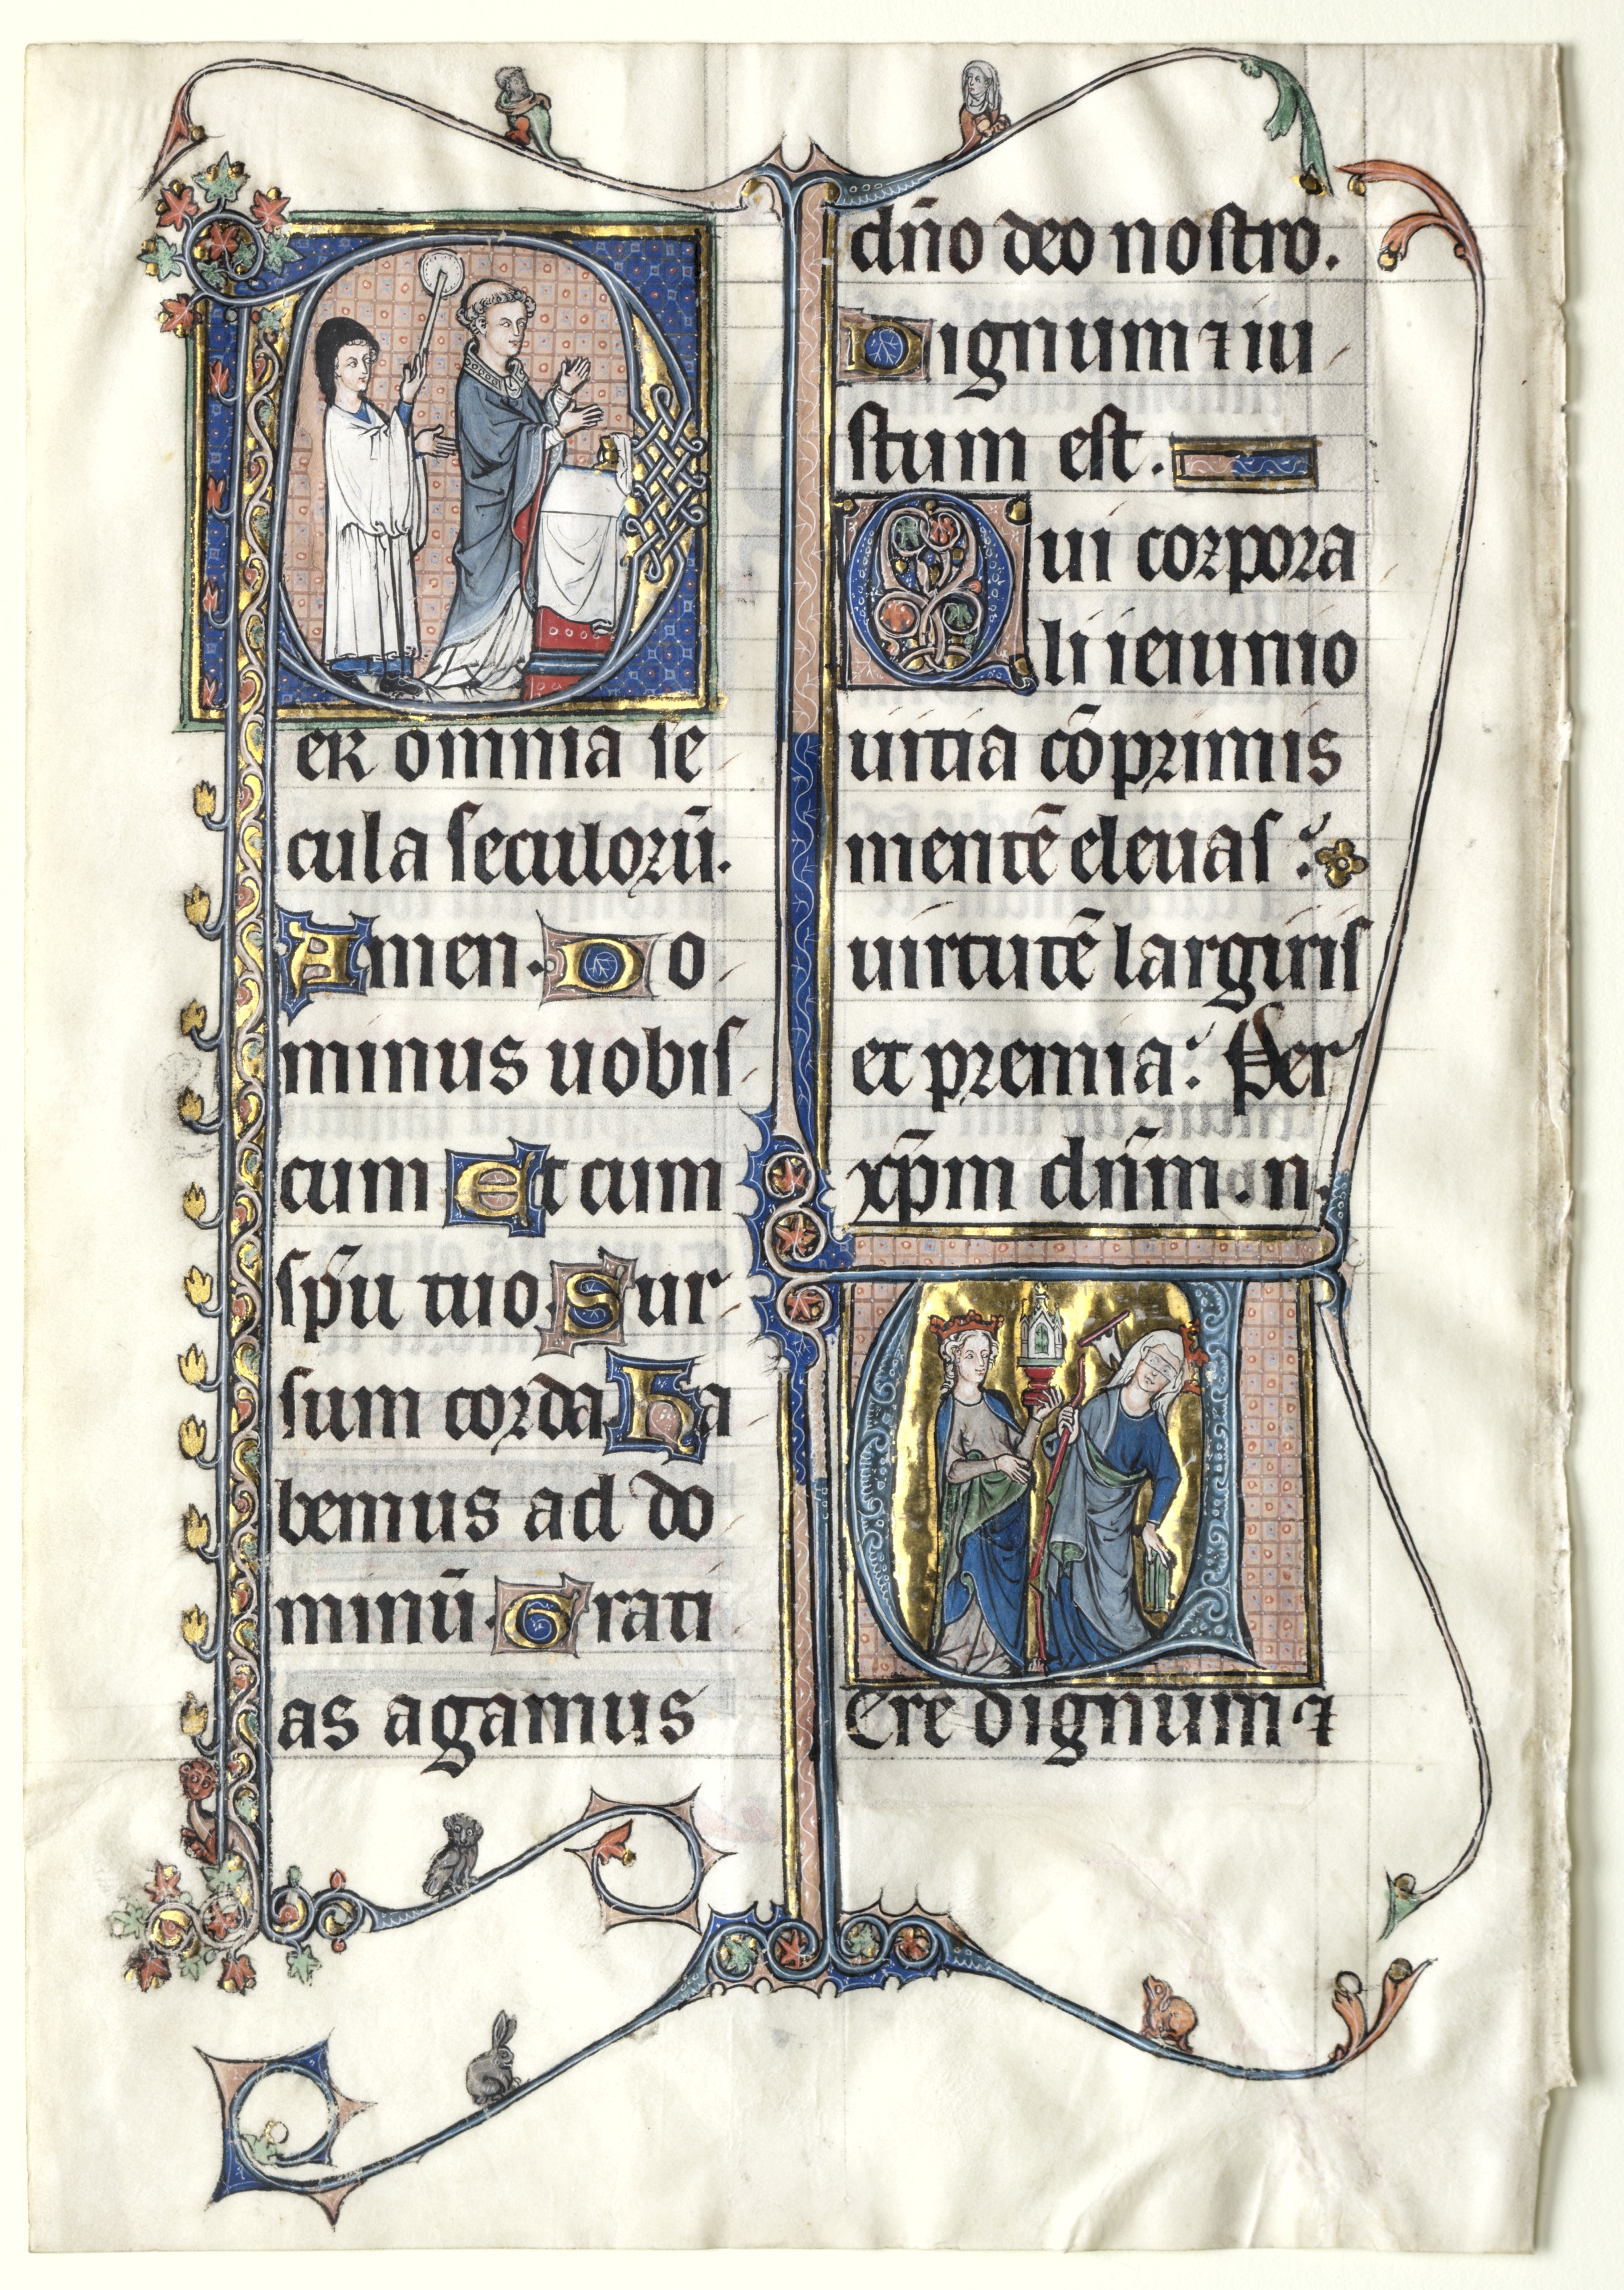 Per omnia se
cula seculorū.
Amen. Do
minus uobis
cum Et cum
sp̄u tuo. Sur
sum corda Ha
bemus ad do
minū. Grati
as agamus
dn̄o deo nostro.
Dignum ⁊ iu
stum est.
Qui corpora
li ieiunio
uitia cōprimis
mentē eleuas :
uirtutē largiris
et premia : Per
xp̄m dn̄m . n.
Uere dignum ⁊